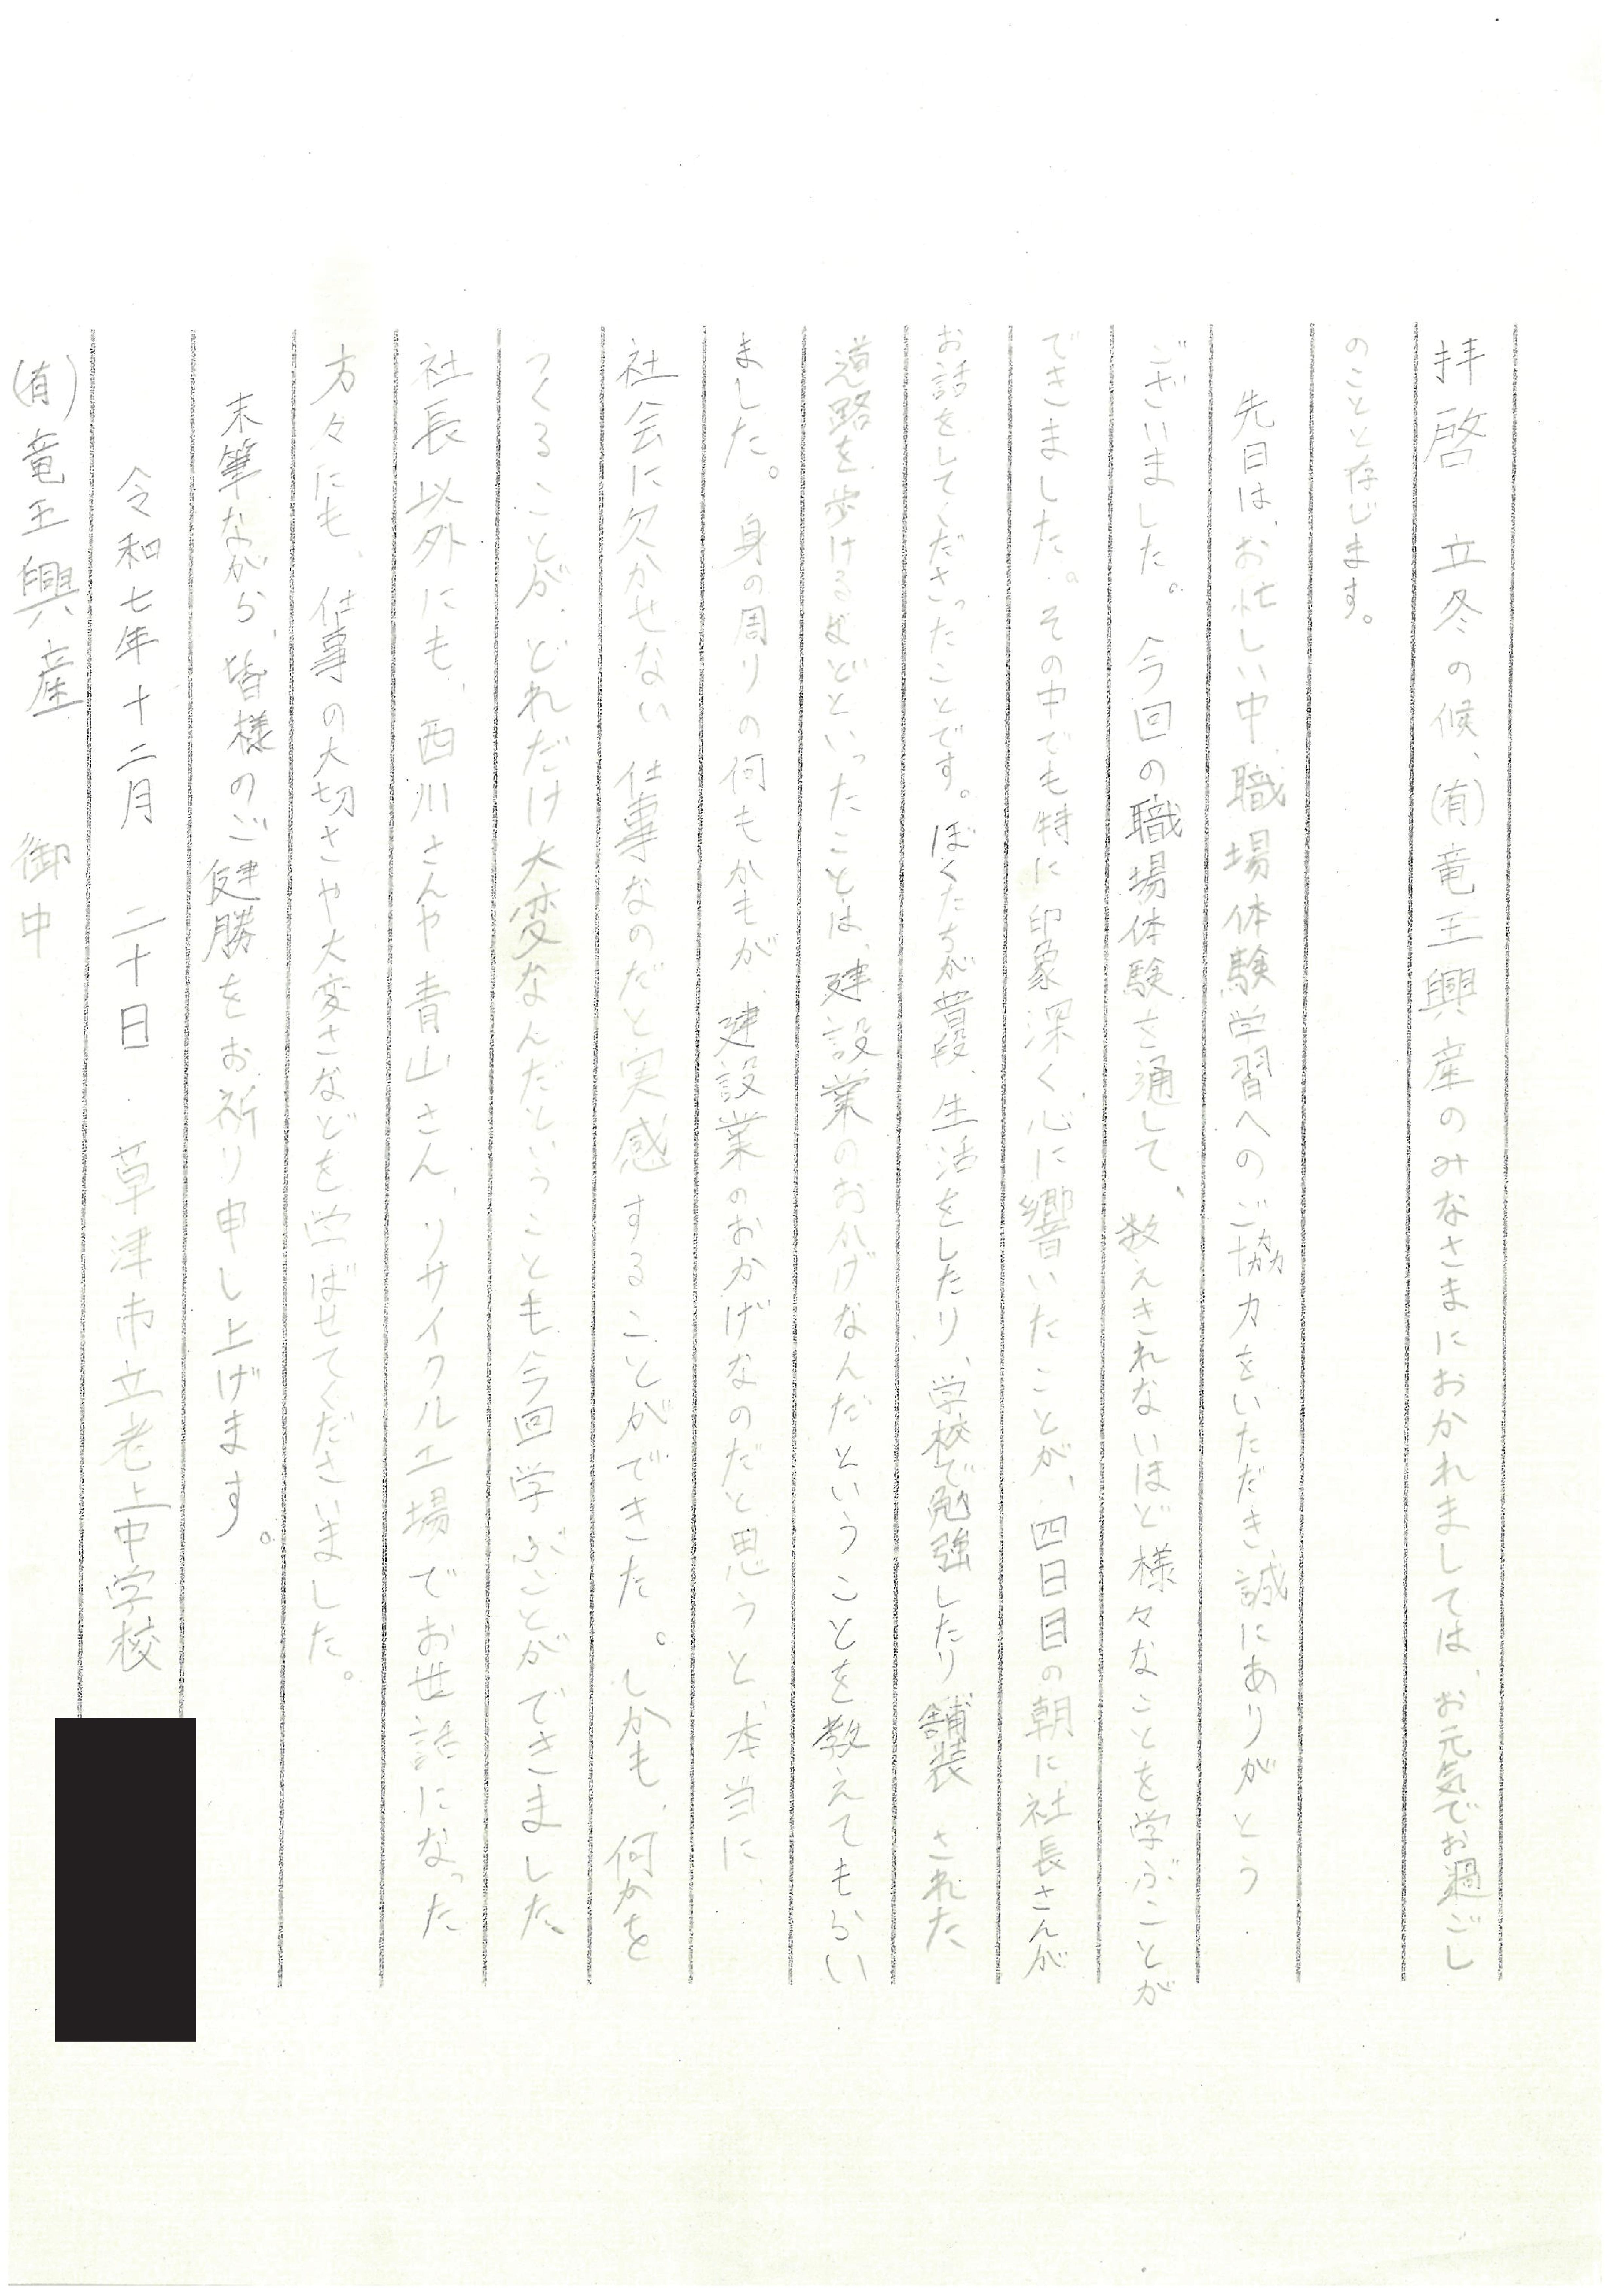 拝啓　立冬の候、(有)竜王興産のみなさまにおかれましては、お元気でお過ごし
のことと存じます。
先日は、お忙しい中、職場体験学習へのご協力をいただき、誠にありがとう
ございました。今回の職場体験を通して、数えきれないほど様々なことを学ぶことが
できました。その中でも特に印象深く心に響いたことが、四日目の朝に社長さんが
お話をしてくださったことです。ぼくたちが普段、生活をしたり、学校で勉強したり舗装された
道路を歩けるなどといったことは、建設業のおかげなんだということを教えてもらい
ました。身の周りの何もかもが、建設業のおかげなのだと思うと、本当に
社会に欠かせない仕事なのだと実感することができた。しかも、何かを
つくることが、どれだけ大変なんだということも今回学ぶことができました。
社長以外にも、西川さんや青山さん、リサイクル工場でお世話になった
方々にも、仕事の大切さや大変さなどを学ばせてくださいました。
末筆ながら、皆様のご健勝をお祈り申し上げます。
令和七年十二月　二十日　草津市立老上中学校
(有)竜王興産　御中